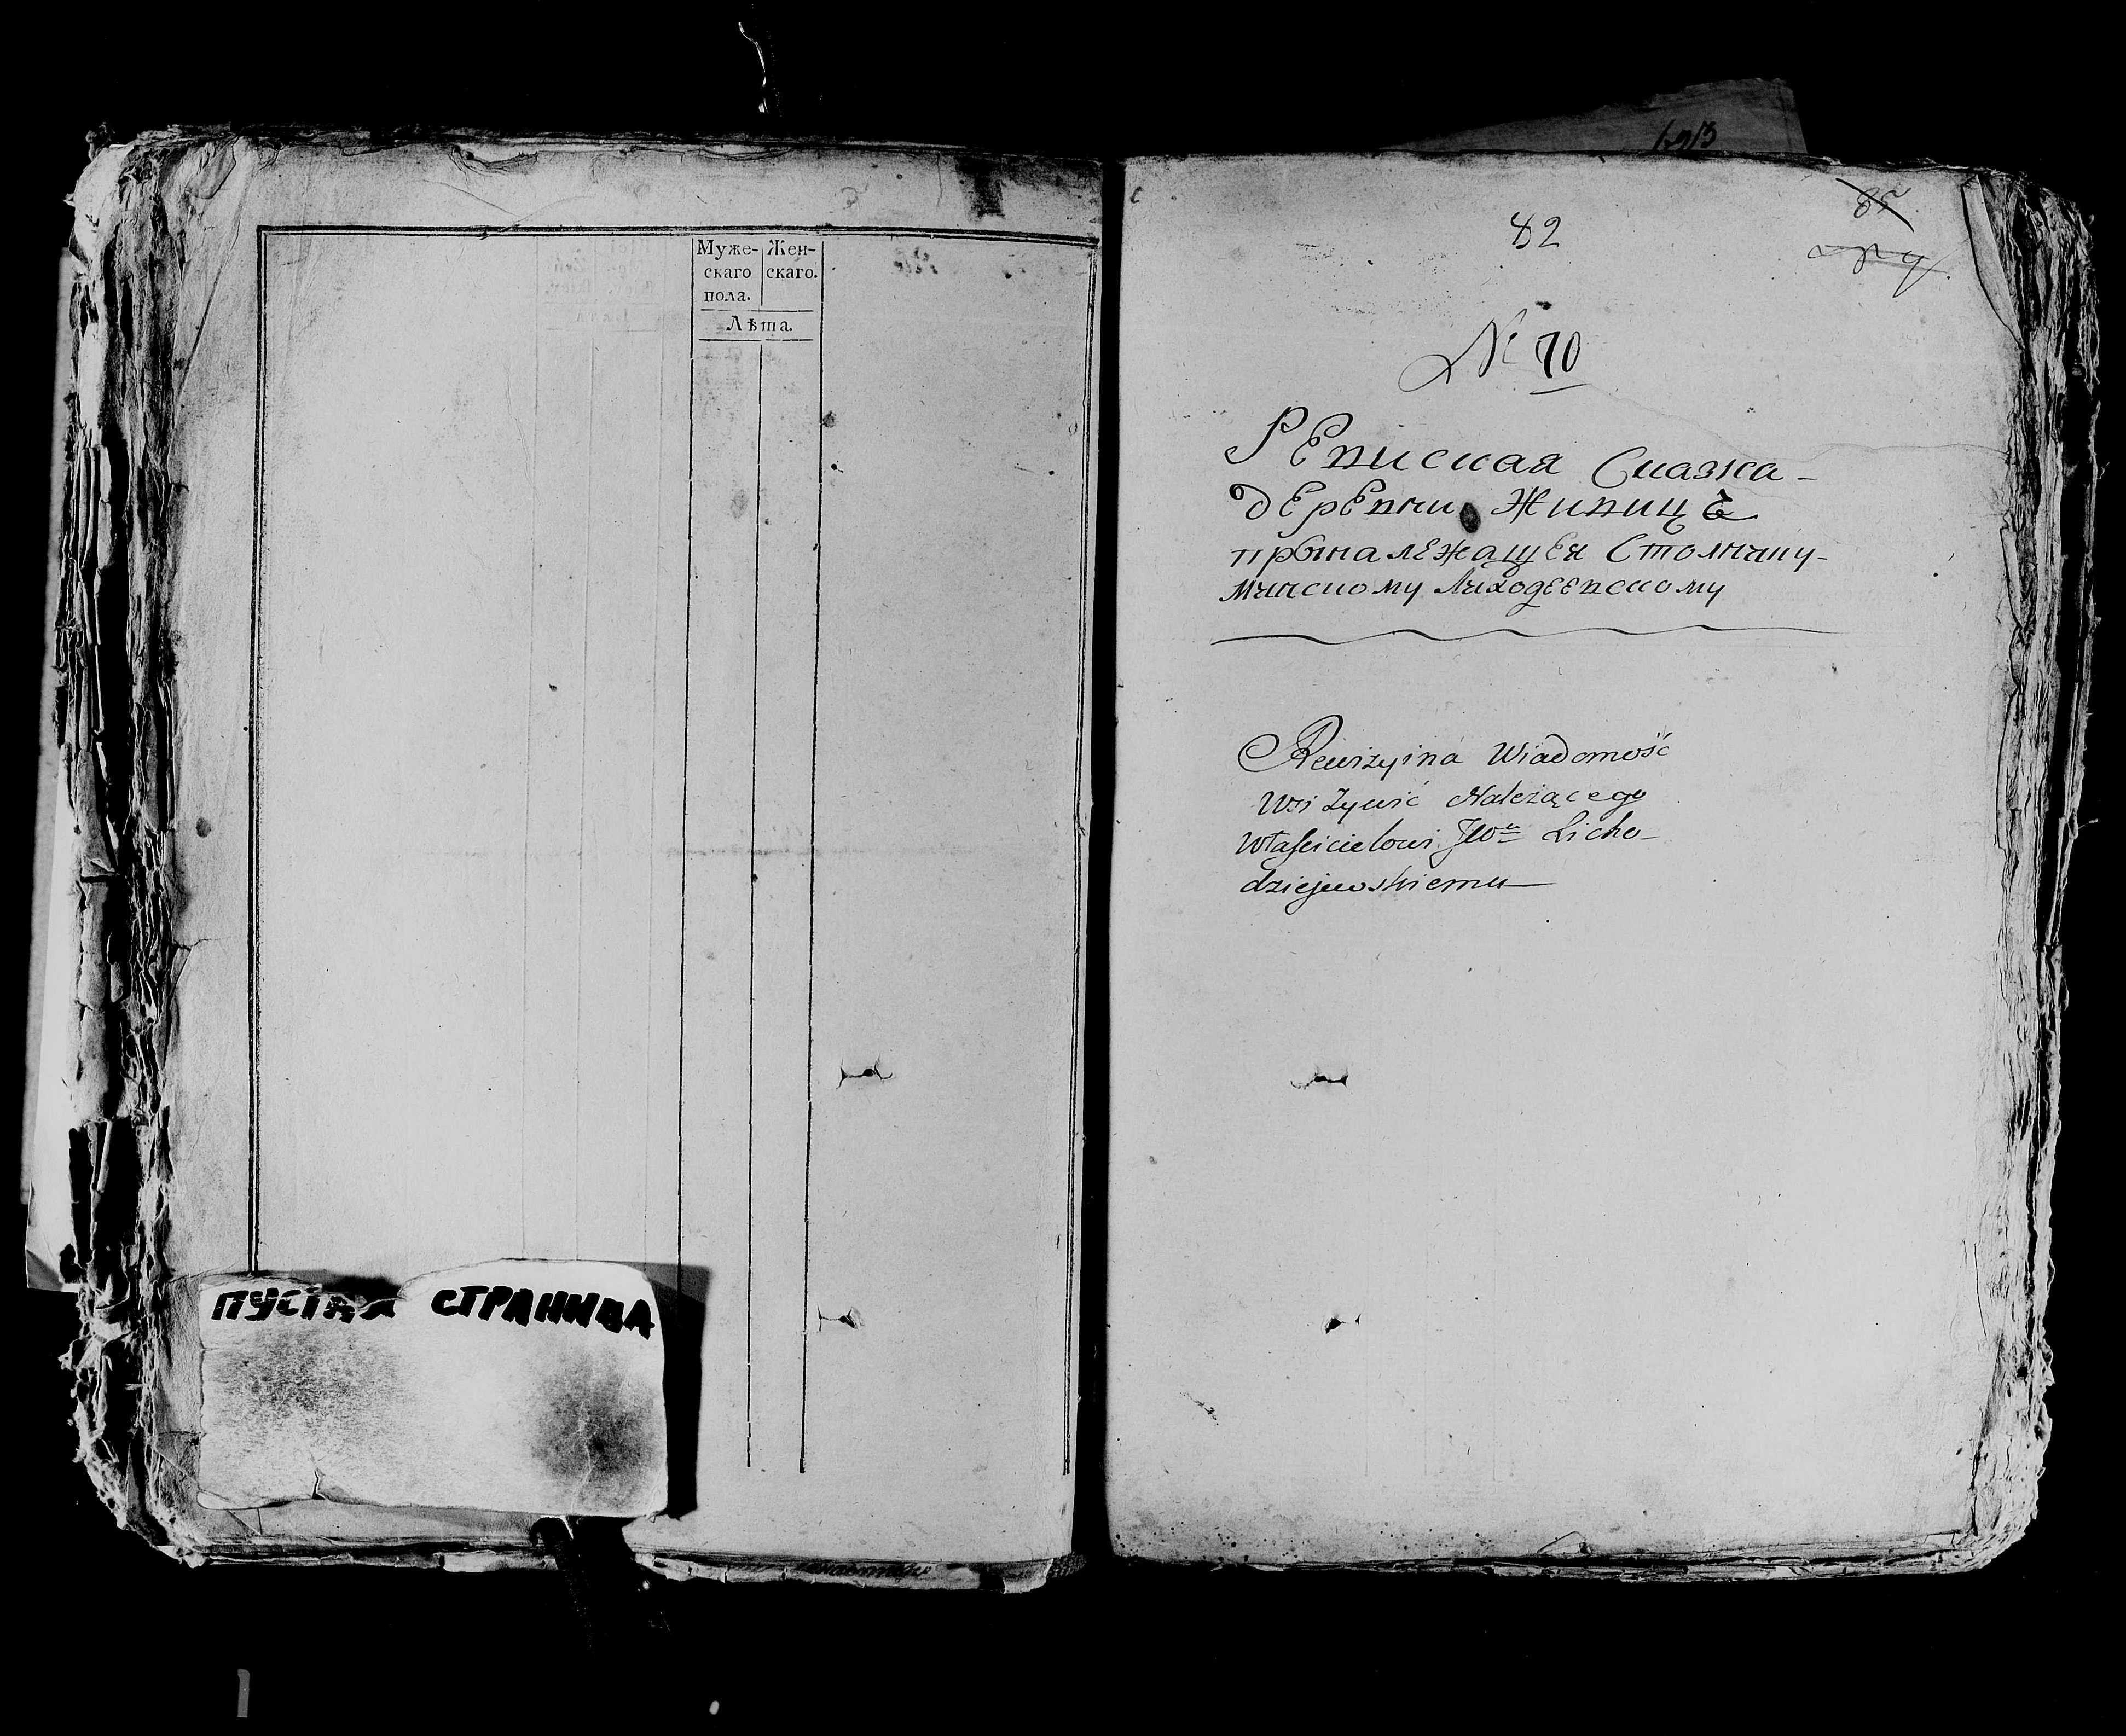 Муже- Жен-
скаго скаго.
пола.
Лѣта.
ПУСТАЯ СТРАНИЦА
82
85
№ 70
РЕвиская Сказка
дЕрЕвни Живице
прыналежащея Столнику
Минскому Лиходеевскому
Rewizyina Wiadomość
Wsi Żywic Należącego
Właścicielowi JWu Licho-
dziejewskiemu